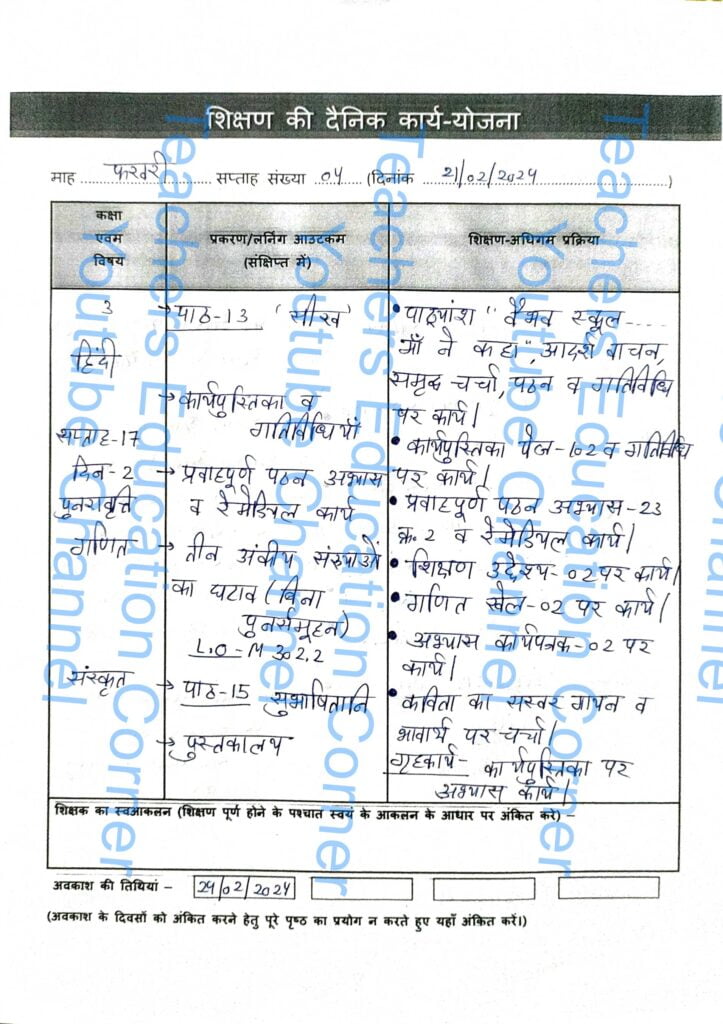 शिक्षण की दैनिक कार्य-योजना
माह फरवरी सप्ताह संख्या 04 (दिनांक 21/02/2024)
कक्षा
एवम
विषय
प्रकरण/लर्निग आउटकम
(संक्षिप्त में)
शिक्षण-अधिगम प्रक्रिया
3
हिंदी
सप्ताह-17
दिन-2
पुनरावृत्ति
गणित
संस्कृत
→ पाठ-13 'सीख'
→ कार्यपुस्तिका व
गतिविधियाँ
→ प्रवाहपूर्ण पठन अभ्यास
व रेमेडियल कार्य
→ तीन अंकीय संख्याओं
का घटाव (बिना
पुनर्समूहन)
L.O-M 302.2
→ पाठ-15 सुभाषितानि
→ पुस्तकालय
• पाठ्यांश "वैभव स्कूल-----
माँ ने कहा", आदर्श वाचन,
समृद्ध चर्चा, पठन व गतिविधि
पर कार्य।
• कार्यपुस्तिका पेज-102 व गतिविधि
पर कार्य।
• प्रवाहपूर्ण पठन अभ्यास-23
क्र.2 व रेमेडियल कार्य।
• शिक्षण उद्देश्य-02 पर कार्य।
• गणित खेल-02 पर कार्य।
• अभ्यास कार्यपत्रक-02 पर
कार्य।
• कविता का सस्वर गायन व
भावार्थ पर चर्चा।
गृहकार्य- कार्यपुस्तिका पर
अभ्यास कार्य।
शिक्षक का स्वआकलन (शिक्षण पूर्ण होने के पश्चात स्वयं के आकलन के आधार पर अंकित करे) –
अवकाश की तिथियां – 24/02/2024
(अवकाश के दिवसों को अंकित करने हेतु पूरे पृष्ठ का प्रयोग न करते हुए यहाँ अंकित करें।)
Teachers Education Corner
Youtube Channel
Teachers Education Corner
Youtube Channel
Teachers Education Corner
Youtube Channel